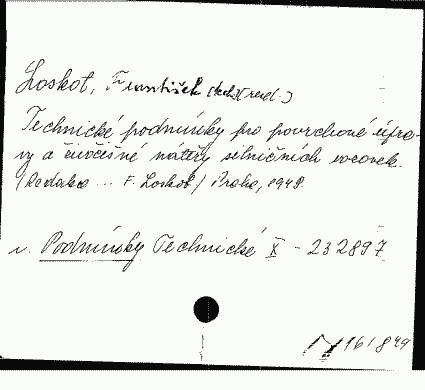 Loskot, František [tech.][red.]
Technické podmínky pro povrchové úpra-
vy a živičné nátěry silničních vozovek.
/Redakce ... F. Loskot/ Praha, 1948.
v. Podmínky Technické X - 232897
161849